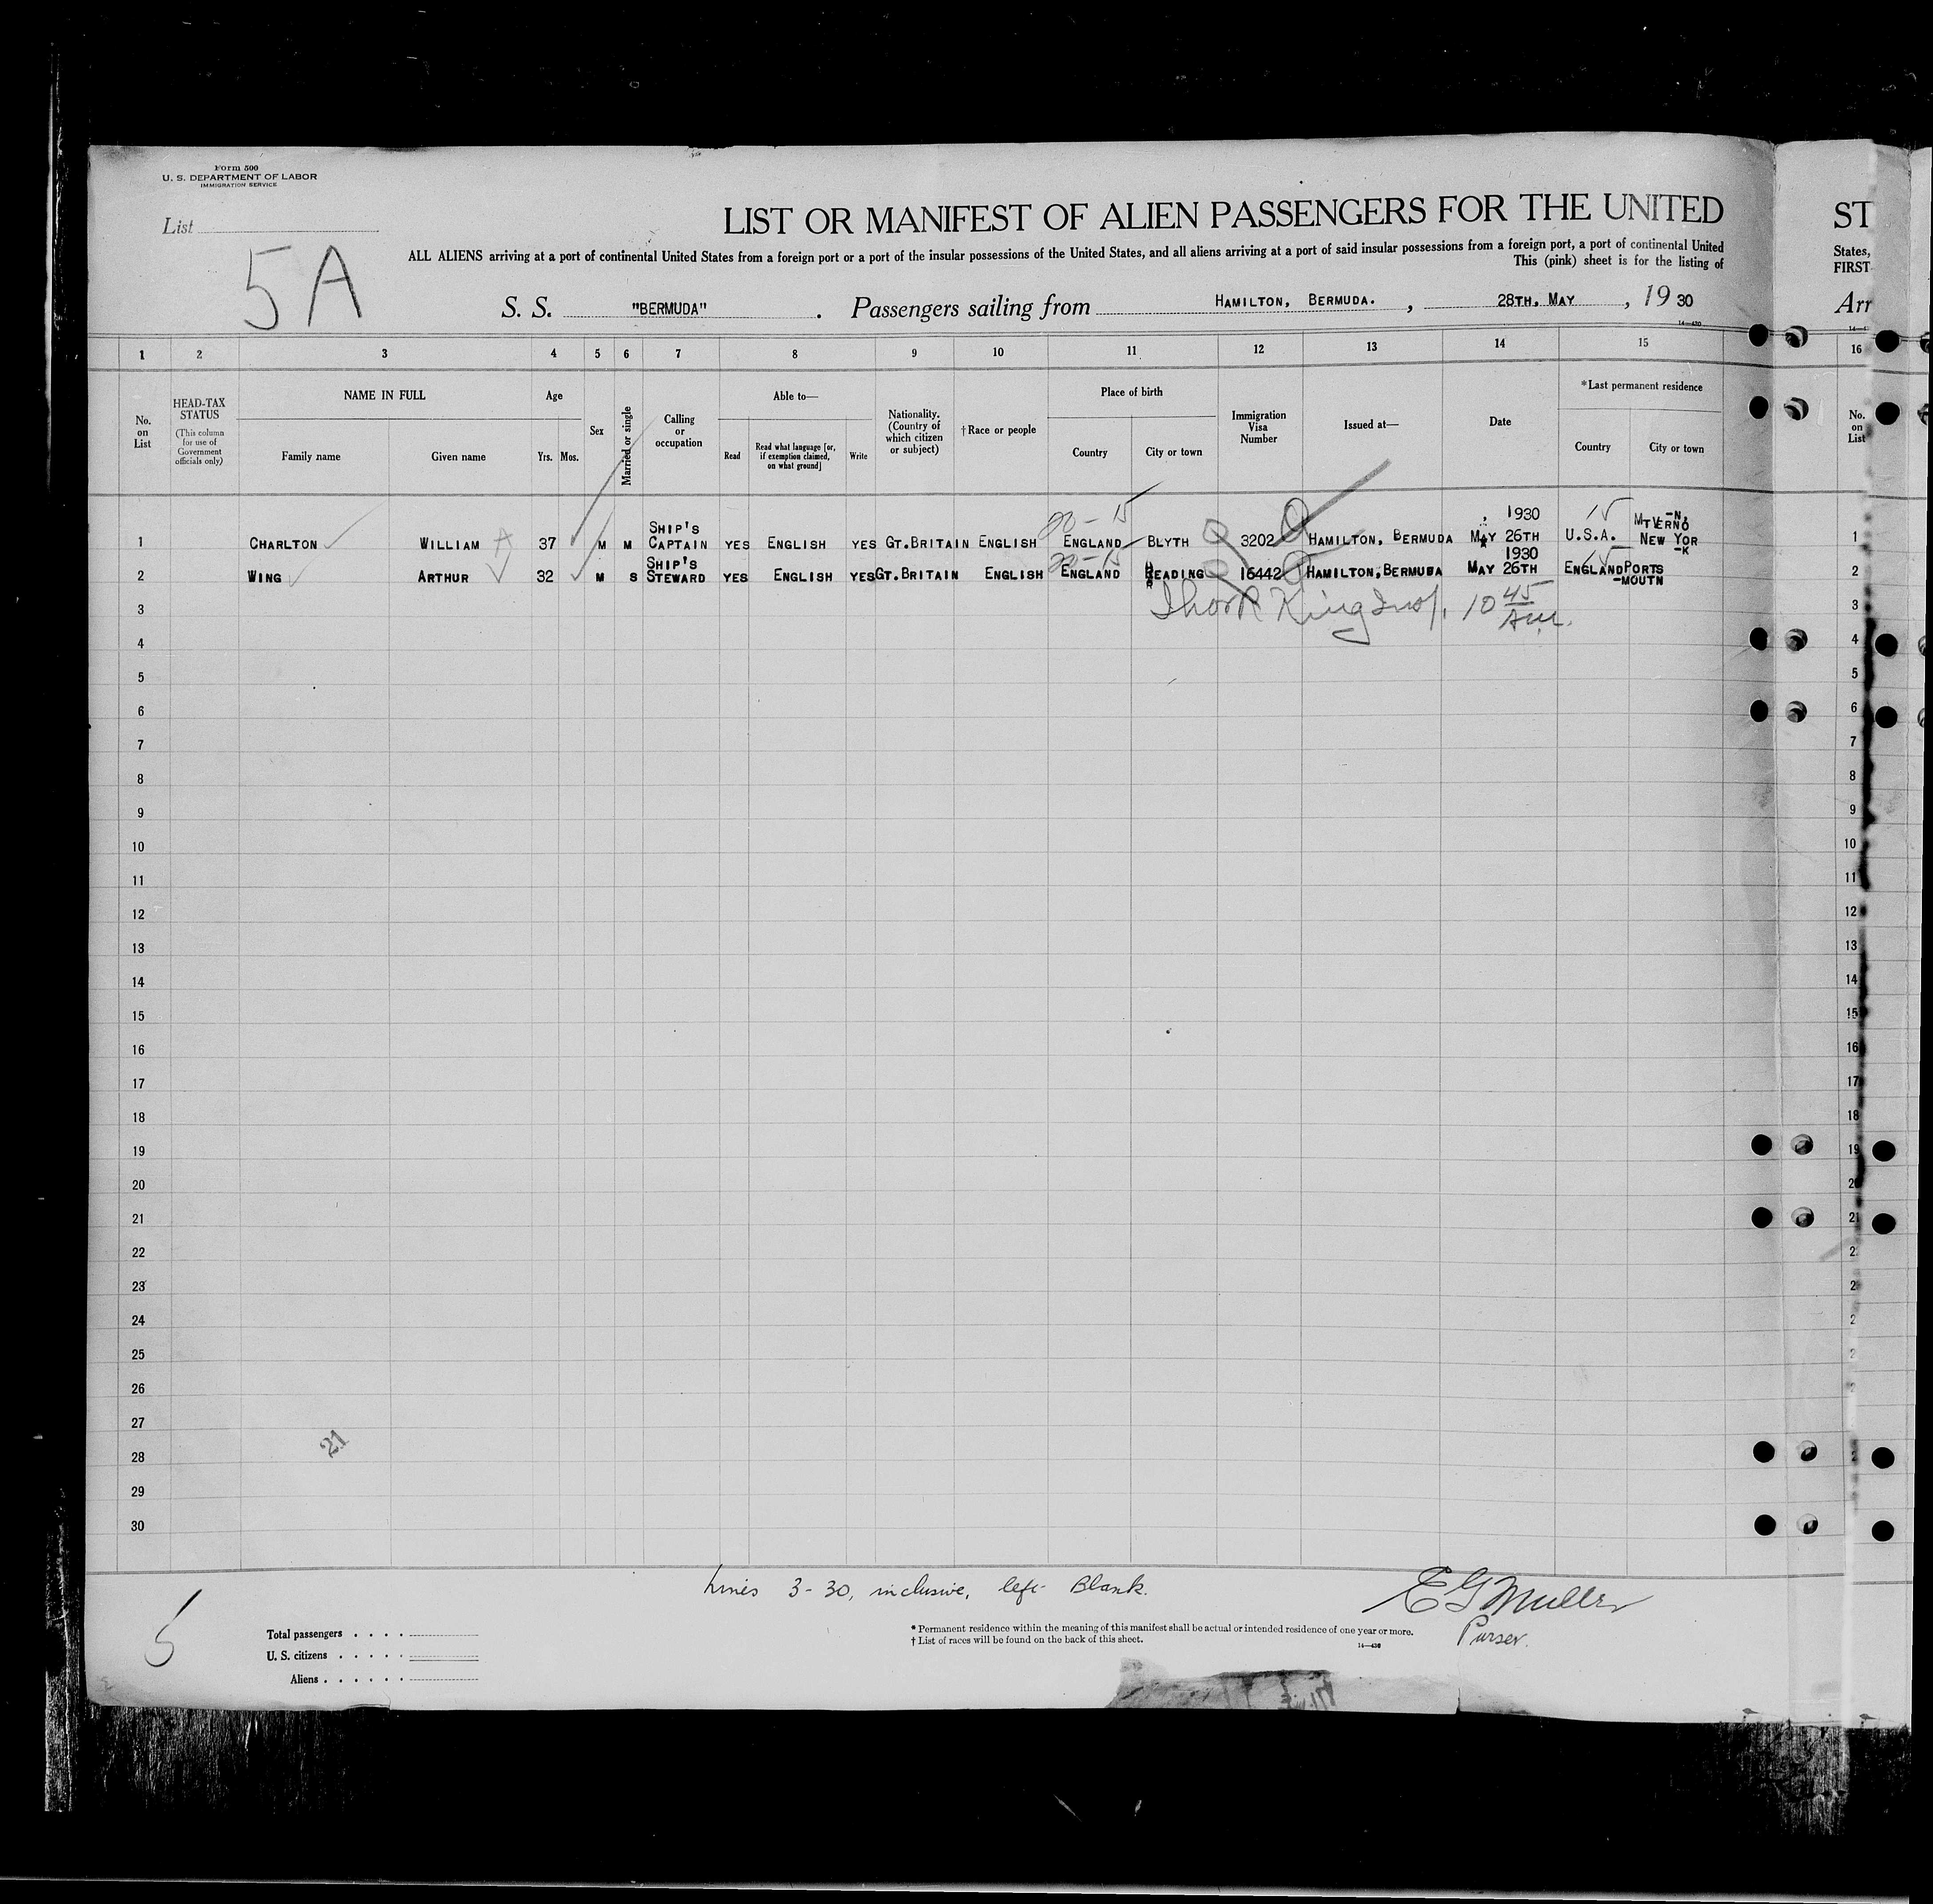 Form 500
U. S. DEPARTMENT OF LABOR
IMMIGRATION SERVICE
List
5A
LIST OR MANIFEST OF ALIEN PASSENGERS FOR THE UNITED ST
ALL ALIENS arriving at a port of continental United States from a foreign port or a port of the insular possessions of the United States, and all aliens arriving at a port of said insular possessions from a foreign port, a port of continental United States,
This (pink) sheet is for the listing of FIRST
S. S. "BERMUDA" . Passengers sailing from HAMILTON, BERMUDA. , 28TH, MAY , 19 30 Arr
14—430
1 2 3 4 5 6 7 8 9 10 11 12 13 14 15 16
No. on List
HEAD-TAX STATUS (This column for use of Government officials only)
NAME IN FULL
Family name Given name
Age
Yrs. Mos.
Sex
Married or single
Calling or occupation
Able to—
Read
Read what language [or, if exemption claimed, on what ground]
Write
Nationality. (Country of which citizen or subject)
†Race or people
Place of birth
Country City or town
Immigration Visa Number
Issued at—
Date
*Last permanent residence
Country City or town
No. on List
20-15
1 CHARLTON WILLIAM 37 M M SHIP'S CAPTAIN YES ENGLISH YES GT.BRITAIN ENGLISH ENGLAND BLYTH 3202 HAMILTON, BERMUDA MAY 26TH , 1930 U.S.A. MT VERNO -N, NEW YOR -K 1
20-15
2 WING ARTHUR 32 M S SHIP'S STEWARD YES ENGLISH YES GT.BRITAIN ENGLISH ENGLAND READING 16442 HAMILTON, BERMUDA MAY 26TH 1930 ENGLAND PORTS -MOUTH 2
3 King Insp. 10 45 AM. 3
4 4
5 5
6 6
7 7
8 8
9 9
10 10
11 11
12 12
13 13
14 14
15 15
16 16
17 17
18 18
19 19
20 20
21 21
22 2
23 2
24 2
25 2
26 2
27
28 2
29
30
21
Lines 3-30, inclusive, left Blank.
E G Muller
Purser.
5
Total passengers
U. S. citizens
Aliens
* Permanent residence within the meaning of this manifest shall be actual or intended residence of one year or more.
† List of races will be found on the back of this sheet.
14—430